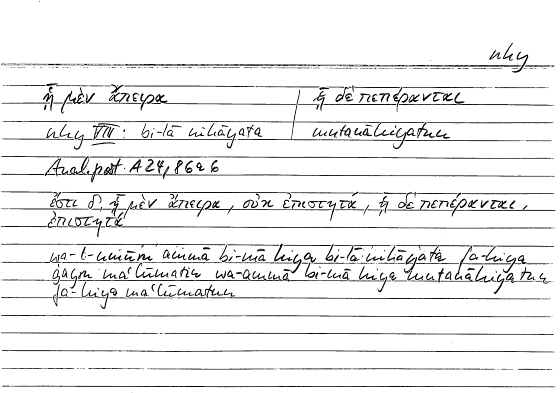 nhy
ᾗ μὲν ἄπειρα | ᾗ δὲ πεπέρανται
nhy VIII : bi-lā nihāyata mutanāhiyatun
Anal. post. A 24, 86a6
ἔστι δ', ᾗ μὲν ἄπειρα, οὐκ ἐπιστητά, ᾗ δὲ πεπέρανται,
ἐπιστητά
wa-l-umūru ammā bi-mā hiya bi-lā nihāyata fa-hiya
ġayru ma‘lūmatin wa-ammā bi-mā hiya mutanāhiyatun
fa-hiya ma‘lūmatun